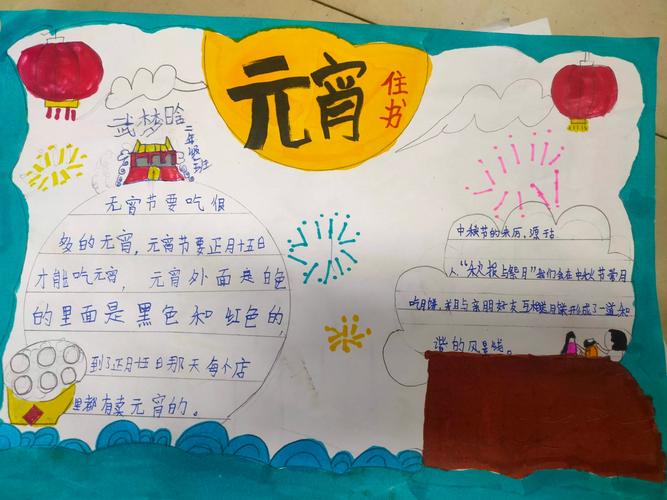 元宵
住书
武梦晗
二年级
班
元宵节要吃很
多的元宵，元宵节要正月十五日
才能吃元宵，元宵外面是白色
的里面是黑色和红色的，
到了正月十五日那天每个店
里都有卖元宵的。
中秋节的来历，源
人“秋报与拜月”我们会在中秋节赏月
吃月饼，并且与亲朋好友互相送月饼形成了一道和
谐的风景线。